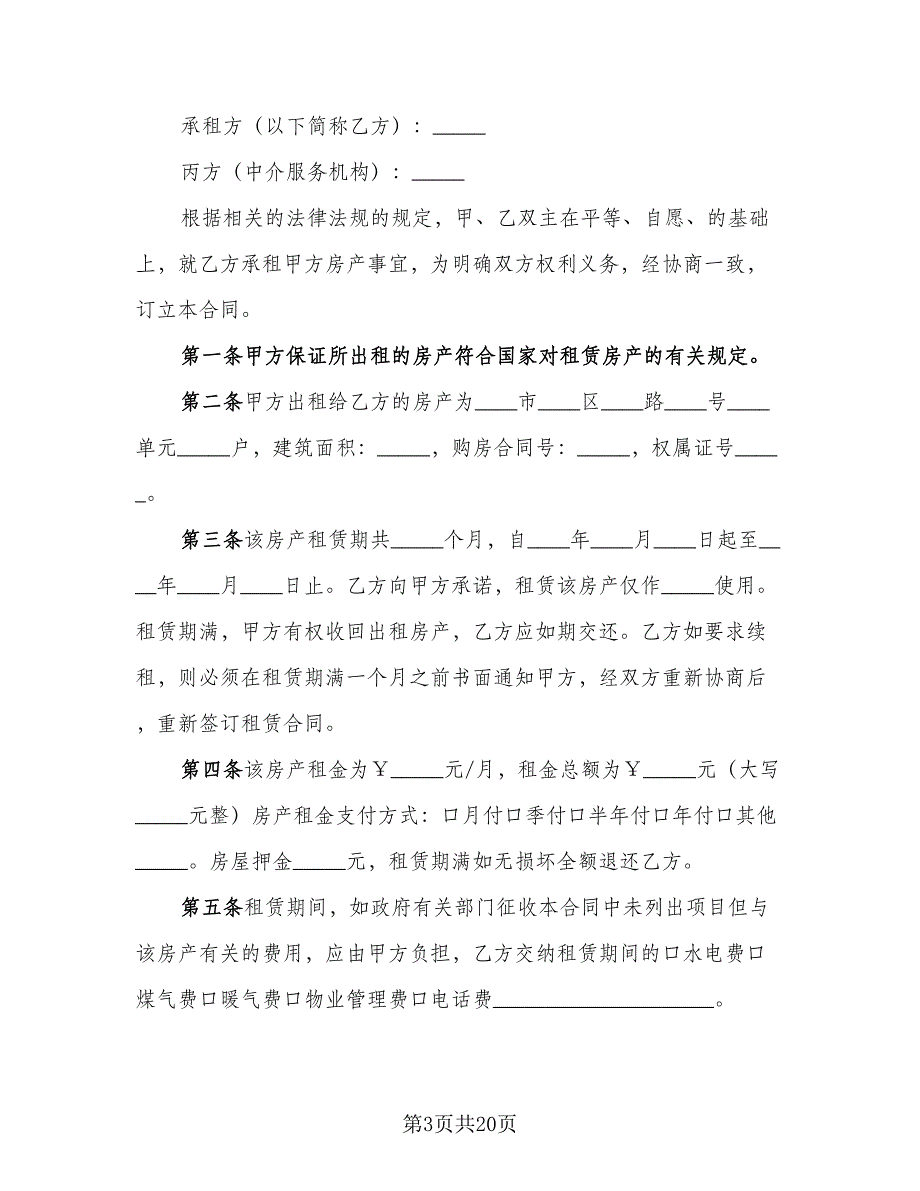 承租方（以下简称乙方）：_____
丙方（中介服务机构）：_____
根据相关的法律法规的规定，甲、乙双主在平等、自愿、的基础
上，就乙方承租甲方房产事宜，为明确双方权利义务，经协商一致，
订立本合同。
第一条甲方保证所出租的房产符合国家对租赁房产的有关规定。
第二条甲方出租给乙方的房产为____市____区____路____号____
单元_____户，建筑面积：_____，购房合同号：_____，权属证号____
_。
第三条该房产租赁期共_____个月，自____年____月____日起至__
__年____月____日止。乙方向甲方承诺，租赁该房产仅作_____使用。
租赁期满，甲方有权收回出租房产，乙方应如期交还。乙方如要求续
租，则必须在租赁期满一个月之前书面通知甲方，经双方重新协商后
，重新签订租赁合同。
第四条该房产租金为￥_____元/月，租金总额为￥_____元（大写
_____元整）房产租金支付方式：口月付口季付口半年付口年付口其他
_____。房屋押金_____元，租赁期满如无损坏全额退还乙方。
第五条租赁期间，如政府有关部门征收本合同中未列出项目但与
该房产有关的费用，应由甲方负担，乙方交纳租赁期间的口水电费口
煤气费口暖气费口物业管理费口电话费_____________________。
第3页共20页